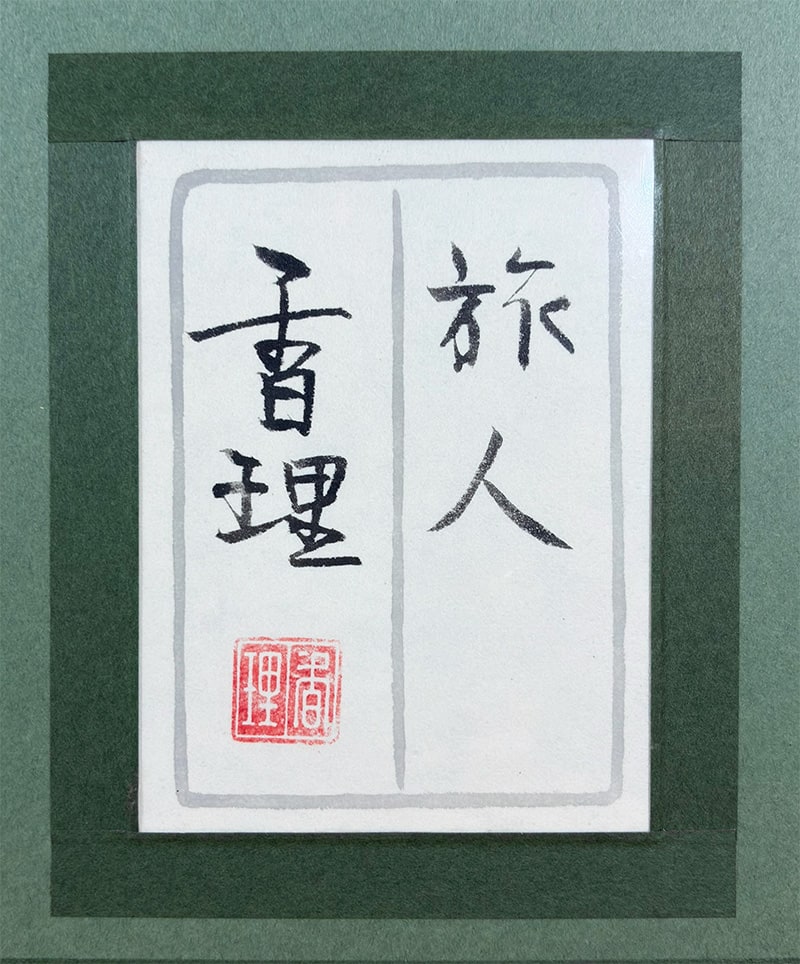 旅人
香理
香理